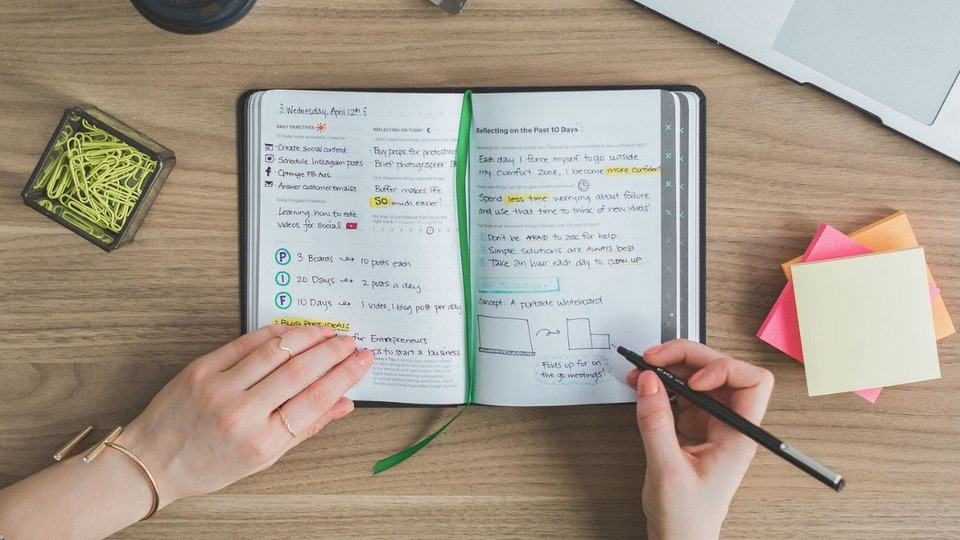 Wednesday, April 12th
DAILY OBJECTIVES
Create social content
Schedule Instagram posts
Optimize FB Ads
Answer customer emails
Today's biggest challenge
Learning how to edit
videos for social
P 3 Boards → 10 posts each
I 20 Days → 2 posts a day
F 10 Days → 1 video, 1 blog post per day
BLOG POST IDEAS:
for Entrepreneurs
to start a business
REFLECTING ON TODAY
Buy props for photoshoot
Brief photographer
Buffer makes life
SO much easier!
Reflecting on the Past 10 Days
Each day I force myself to go outside
my comfort zone, I become more confident
Spend less time worrying about failure
and use that time to think of new ideas!
Don't be AFRAID to ask for help
Simple solutions are ALWAYS best
Take an hour each day to CLEAN UP
Concept: A portable whiteboard
Folds up for on
the go meetings!